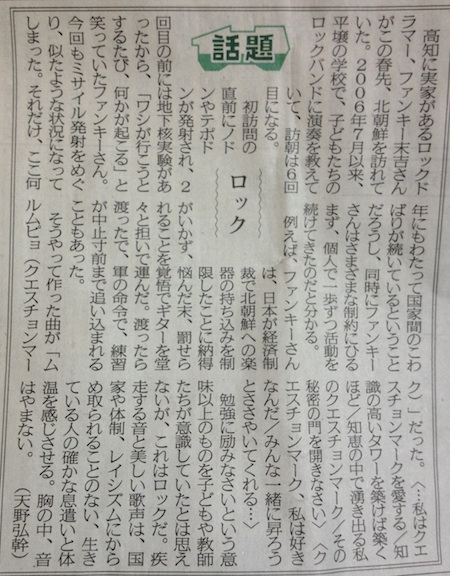 話題
ロック
高知に実家があるロックド
ラマー、ファンキー末吉さん
がこの春先、北朝鮮を訪れて
いた。2006年7月以来、
平壌の学校で、子どもたちの
ロックバンドに演奏を教えて
いて、訪朝は6回
目になる。
初訪問の
直前にノド
ンやテポド
ンが発射され、2
回目の前には地下核実験があ
ったから、「ワシが行こうと
するたび、何かが起こる」と
笑っていたファンキーさん。
今回もミサイル発射をめぐ
り、似たような状況になって
しまった。それだけ、ここ何
年にもわたって国家間のこわ
ばりが続いているということ
だろうし、同時にファンキー
さんはさまざまな制約にひる
まず、個人で一歩ずつ活動を
続けてきたのだと分かる。
例えば、ファンキーさん
は、日本が経済制
裁で北朝鮮への楽
器の持ち込みを制
限したことに納得
がいかず、悩んだ末、罰せら
れることを覚悟でギターを堂
々と担いで運んだ。渡ったら
渡ったで、軍の命令で、練習
が中止寸前まで追い込まれる
こともあった。
そうやって作った曲が「ム
ルムピョ(クエスチョンマー
ク)」だった。〈…私はクエ
スチョンマークを愛する/知
識の高いタワーを築けば築く
ほど/知恵の中で湧き出る私
のクエスチョンマーク/その
秘密の門を開きなさい〉〈ク
エスチョンマーク、私は好き
なんだ/みんな一緒に昇ろう
とささやいてくれる…〉
勉強に励みなさいという意
味以上のものを子どもや教師
たちが意識していたとは思え
ないが、これはロックだ。疾
走する音と美しい歌声は、国
家や体制、レイシズムにから
め取られることのない、生き
ている人の確かな息遣いと体
温を感じさせる。胸の中、音
はやまない。
(天野弘幹)